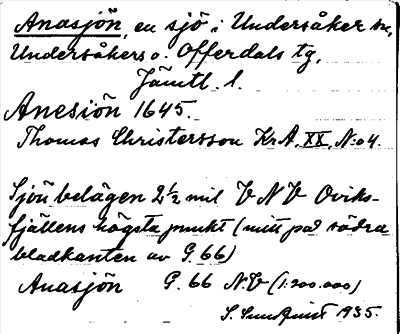 Anasjön, en sjö i Undersåker sn,
Undersåkers o. Offerdals tg,
Jämtl. l.
Anesiön 1645.
Thomas Christersson KrA, XX, N:o 4.
Sjön belägen 2½ mil V N V Oviks-
fjällens högsta punkt (mitt på södra
bladkanten av G. 66)
Anasjön G. 66 NV (1:200.000)
S. 1935.